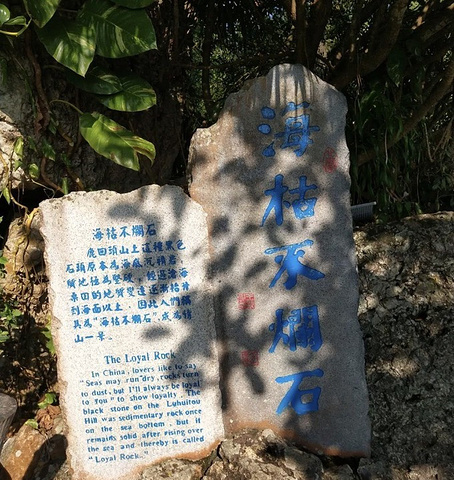 海枯不爛石
海枯不爛石
鹿回頭山上這種黑色
石頭原本為海底沉積岩，
質地極為堅硬，經過滄海
桑田的地質變遷逐漸抬升
到海面以上，因此人們稱
其為“海枯不爛石”，成為鹿
山一景。
The Loyal Rock
In China, lovers like to say
"Seas may run dry, rocks turn
to dust, but I'll always be loyal
to You" to show loyalty. The
black stone on the Luhuitou
Hill was sedimentary rock once
on the sea bottom, but it
remains solid after rising over
the sea and thereby is called
"Loyal Rock."